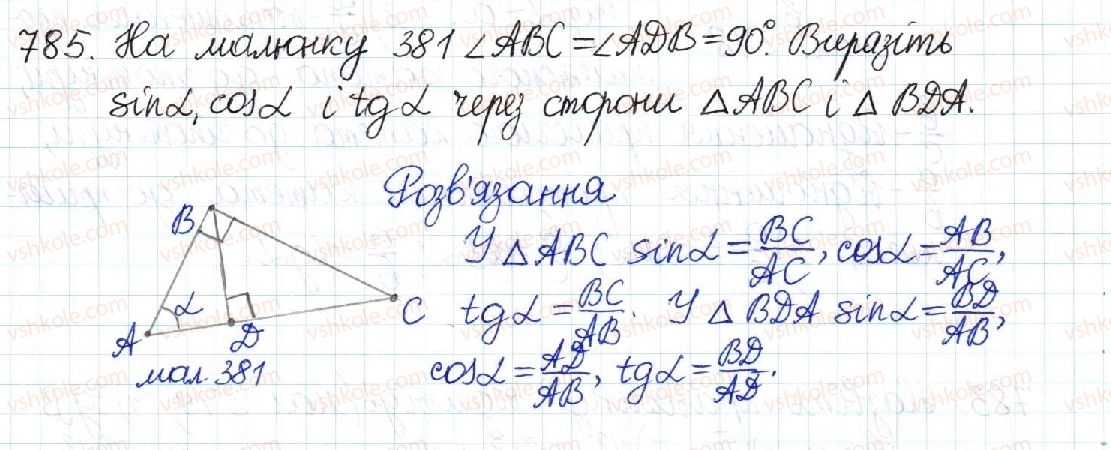 785. На малюнку 381 ∠ABC=∠ADB=90°. Виразіть
sinα, cosα і tgα через сторони △ABC і △ BDA.
Розв'язання
У △ABC sinα = BC/AC, cosα = AB/AC,
tgα = BC/AB. У △ BDA sinα = BD/AB,
cosα = AD/AB, tgα = BD/AD.
B
α
A
D
C
мал. 381